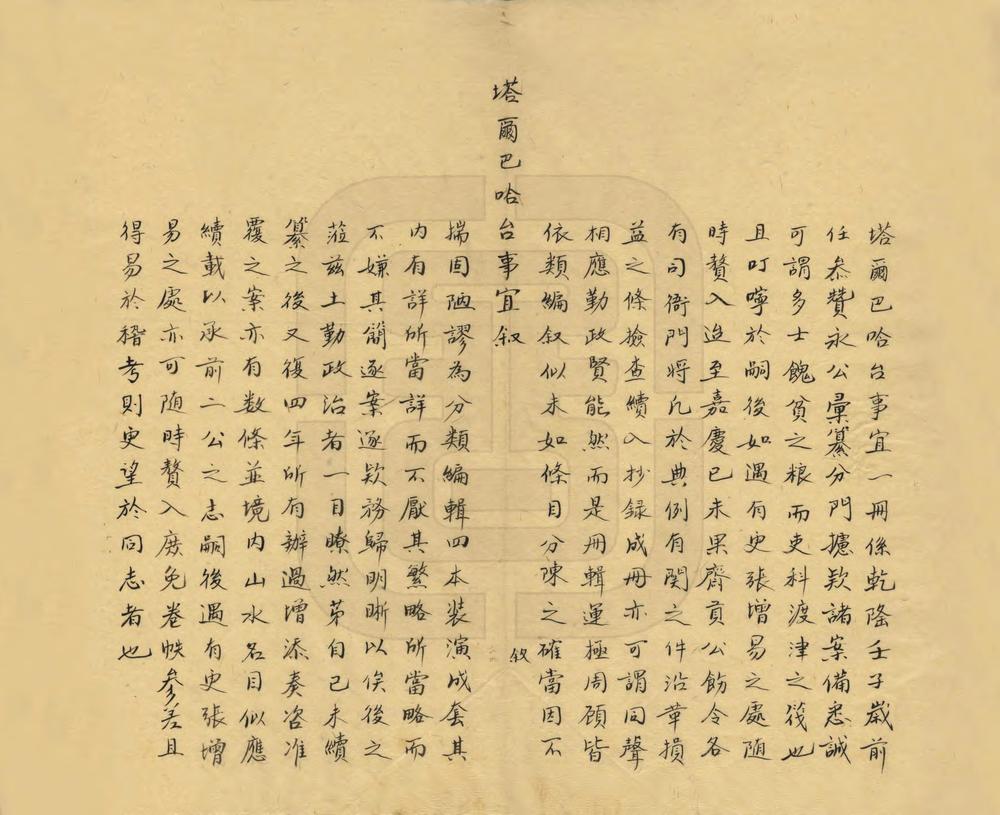 塔爾巴哈台事宜一冊係乾隆壬子歲前
任叅贊永公彙纂分門攄欵諸案備悉誠
可謂多士餽貧之粮而吏科渡津之筏也
且叮嚀於嗣後如遇有更張增易之處随
時贅入迨至嘉慶已未果齊貢公飭令各
有司衙門將凡於典例有関之件沿革損
益之條撿查續入抄録成冊亦可謂同聲
相應勤政賢能然而是冊輯運極周顾皆
依類編叙似未如條目分陳之確當因不
塔爾巴哈台事宜叙
叙
揣固陋謬為分類編輯四本装演成套其
内有詳所當詳而不厭其繁略所當略而
不嫌其簡逐案逐欵務歸明晰以俟後之
蒞兹土勤政治者一目瞭然第自已未續
纂之後又復四年所有辦過增添奏咨准
覆之案亦有数條並境内山水名目似應
續載以承前二公之志嗣後遇有更張增
易之處亦可随時贅入庶免卷帙参差且
得易於稽考則更望於同志者也